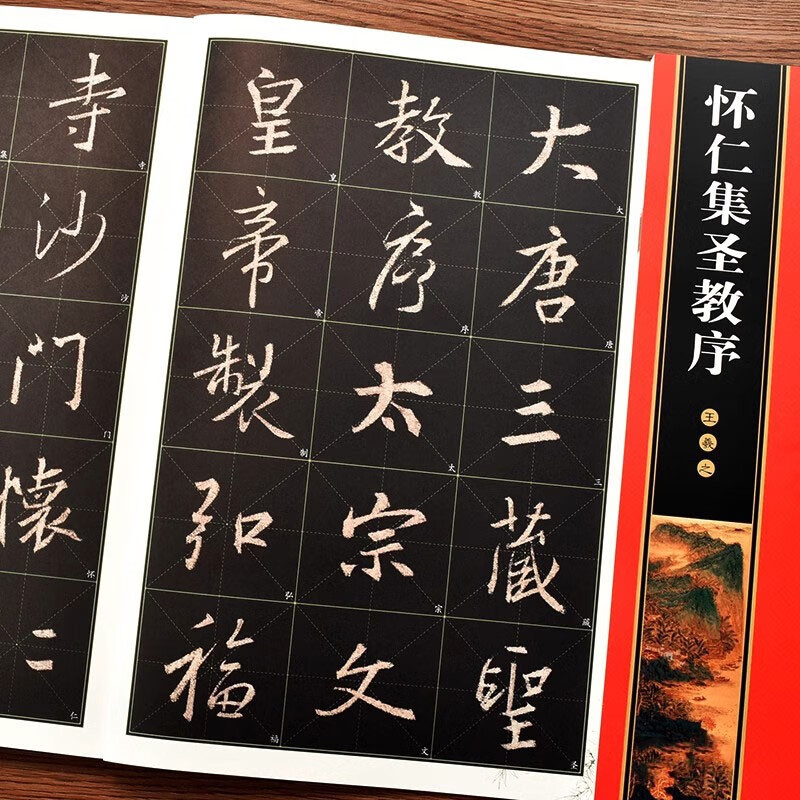 怀仁集圣教序
王羲之
大唐三藏聖
大唐三藏圣
教序太宗文
教序太宗文
皇帝製弘福
皇帝制弘福
寺沙门懷
寺沙门怀仁
集